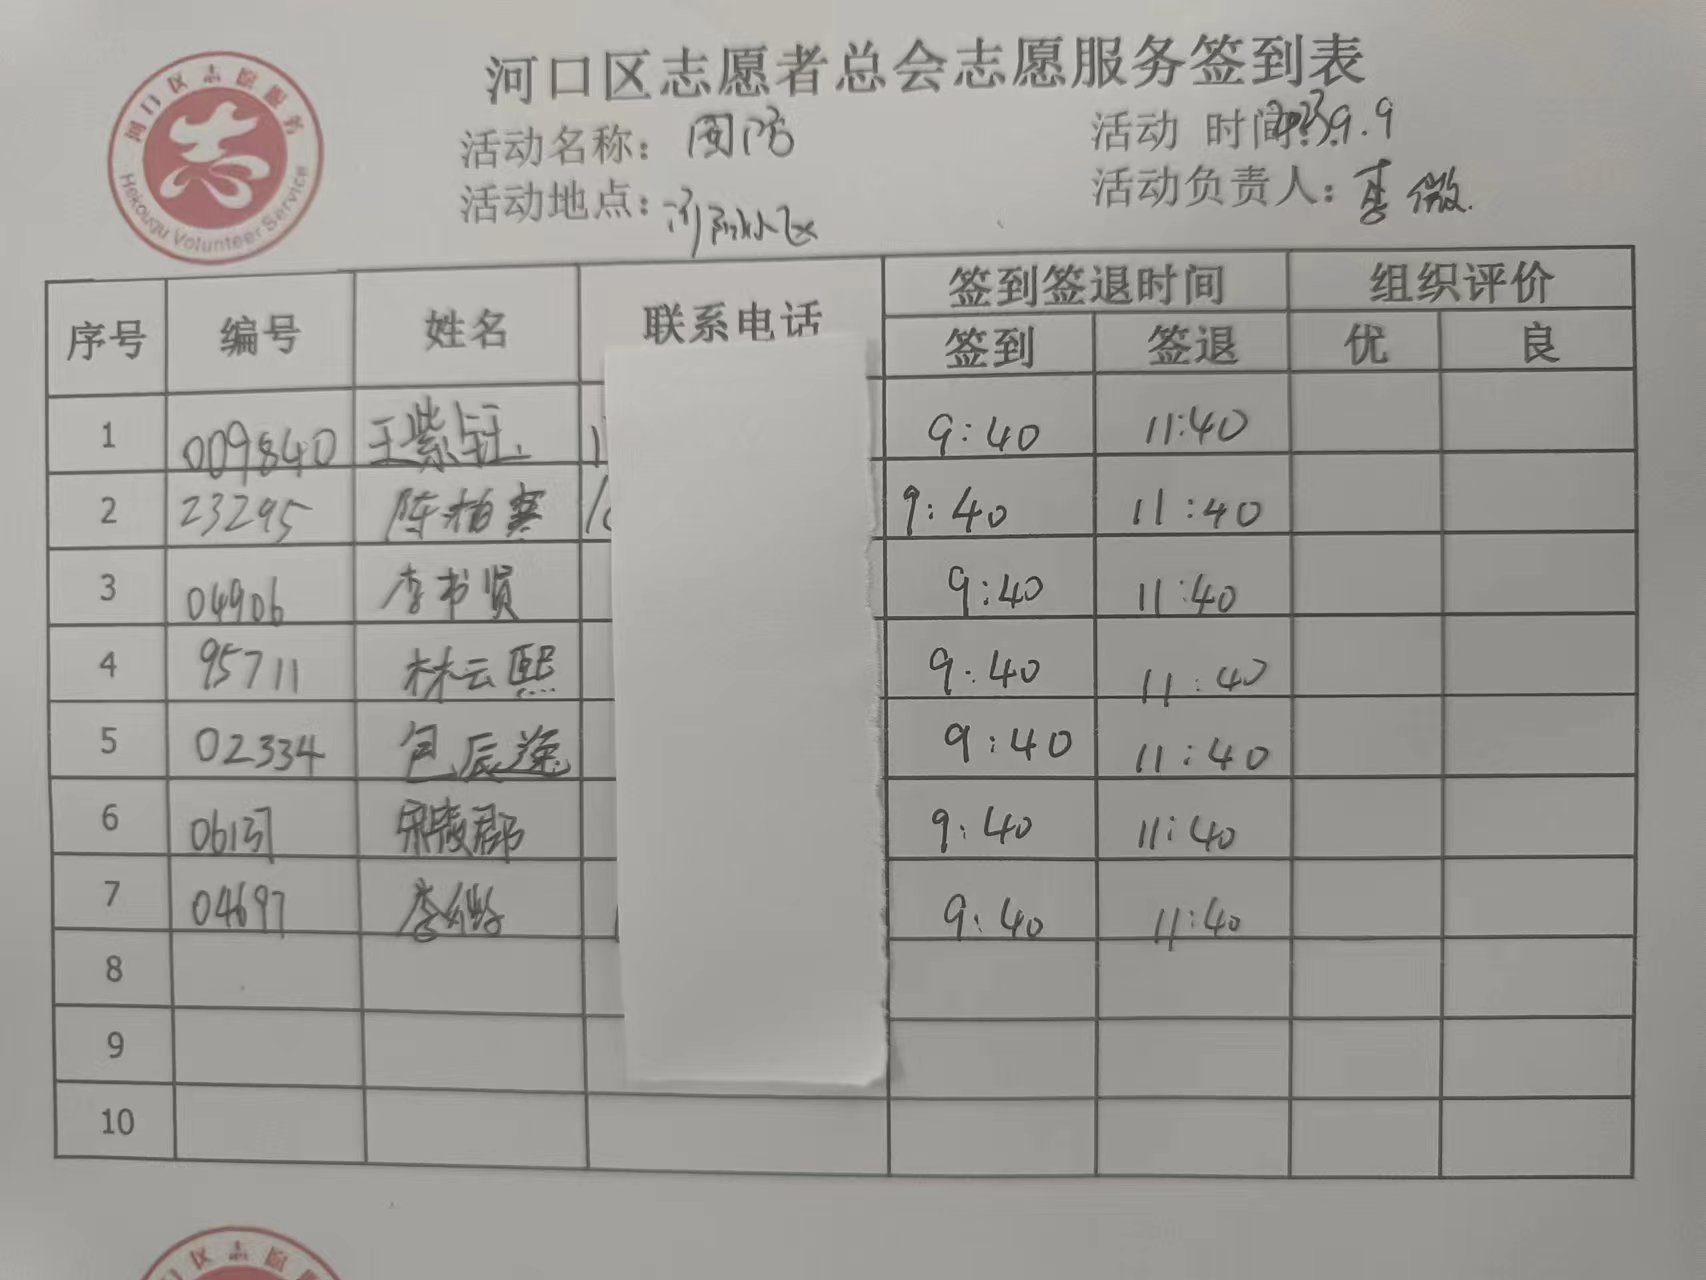 河口区志愿者总会志愿服务签到表
河口区志愿服务
Hekouqu Volunteer Service
活动名称： 活动 时间：2023.9.9
活动地点： 小区 活动负责人：李微
序号 编号 姓名 联系电话 签到签退时间 组织评价
签到 签退 优 良
1 009840 王紫钰 9:40 11:40
2 23295 陈柏赛 9:40 11:40
3 04906 李书贤 9:40 11:40
4 95711 林云熙 9:40 11:40
5 02334 包辰逸 9:40 11:40
6 郡 9:40 11:40
7 04697 李 9:40 11:40
8
9
10
河口区志愿